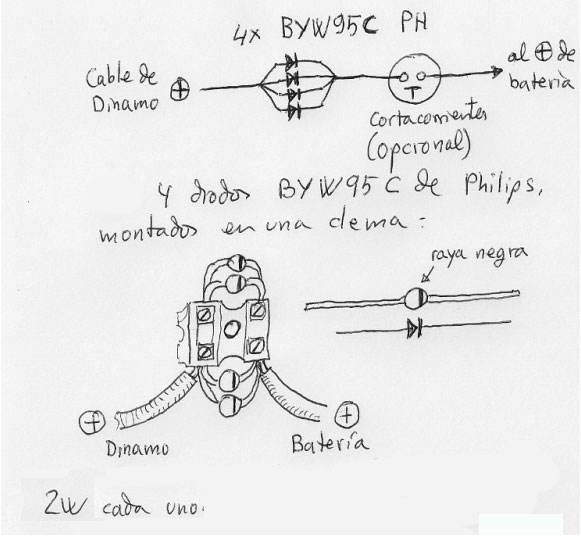 4x BYW95C PH
Cable de
Dinamo
al ⊕ de
batería
Cortacorrientes
(opcional)
4 diodos BYW95C de Philips,
montados en una clema:
raya negra
Dinamo
Batería
2W cada uno.